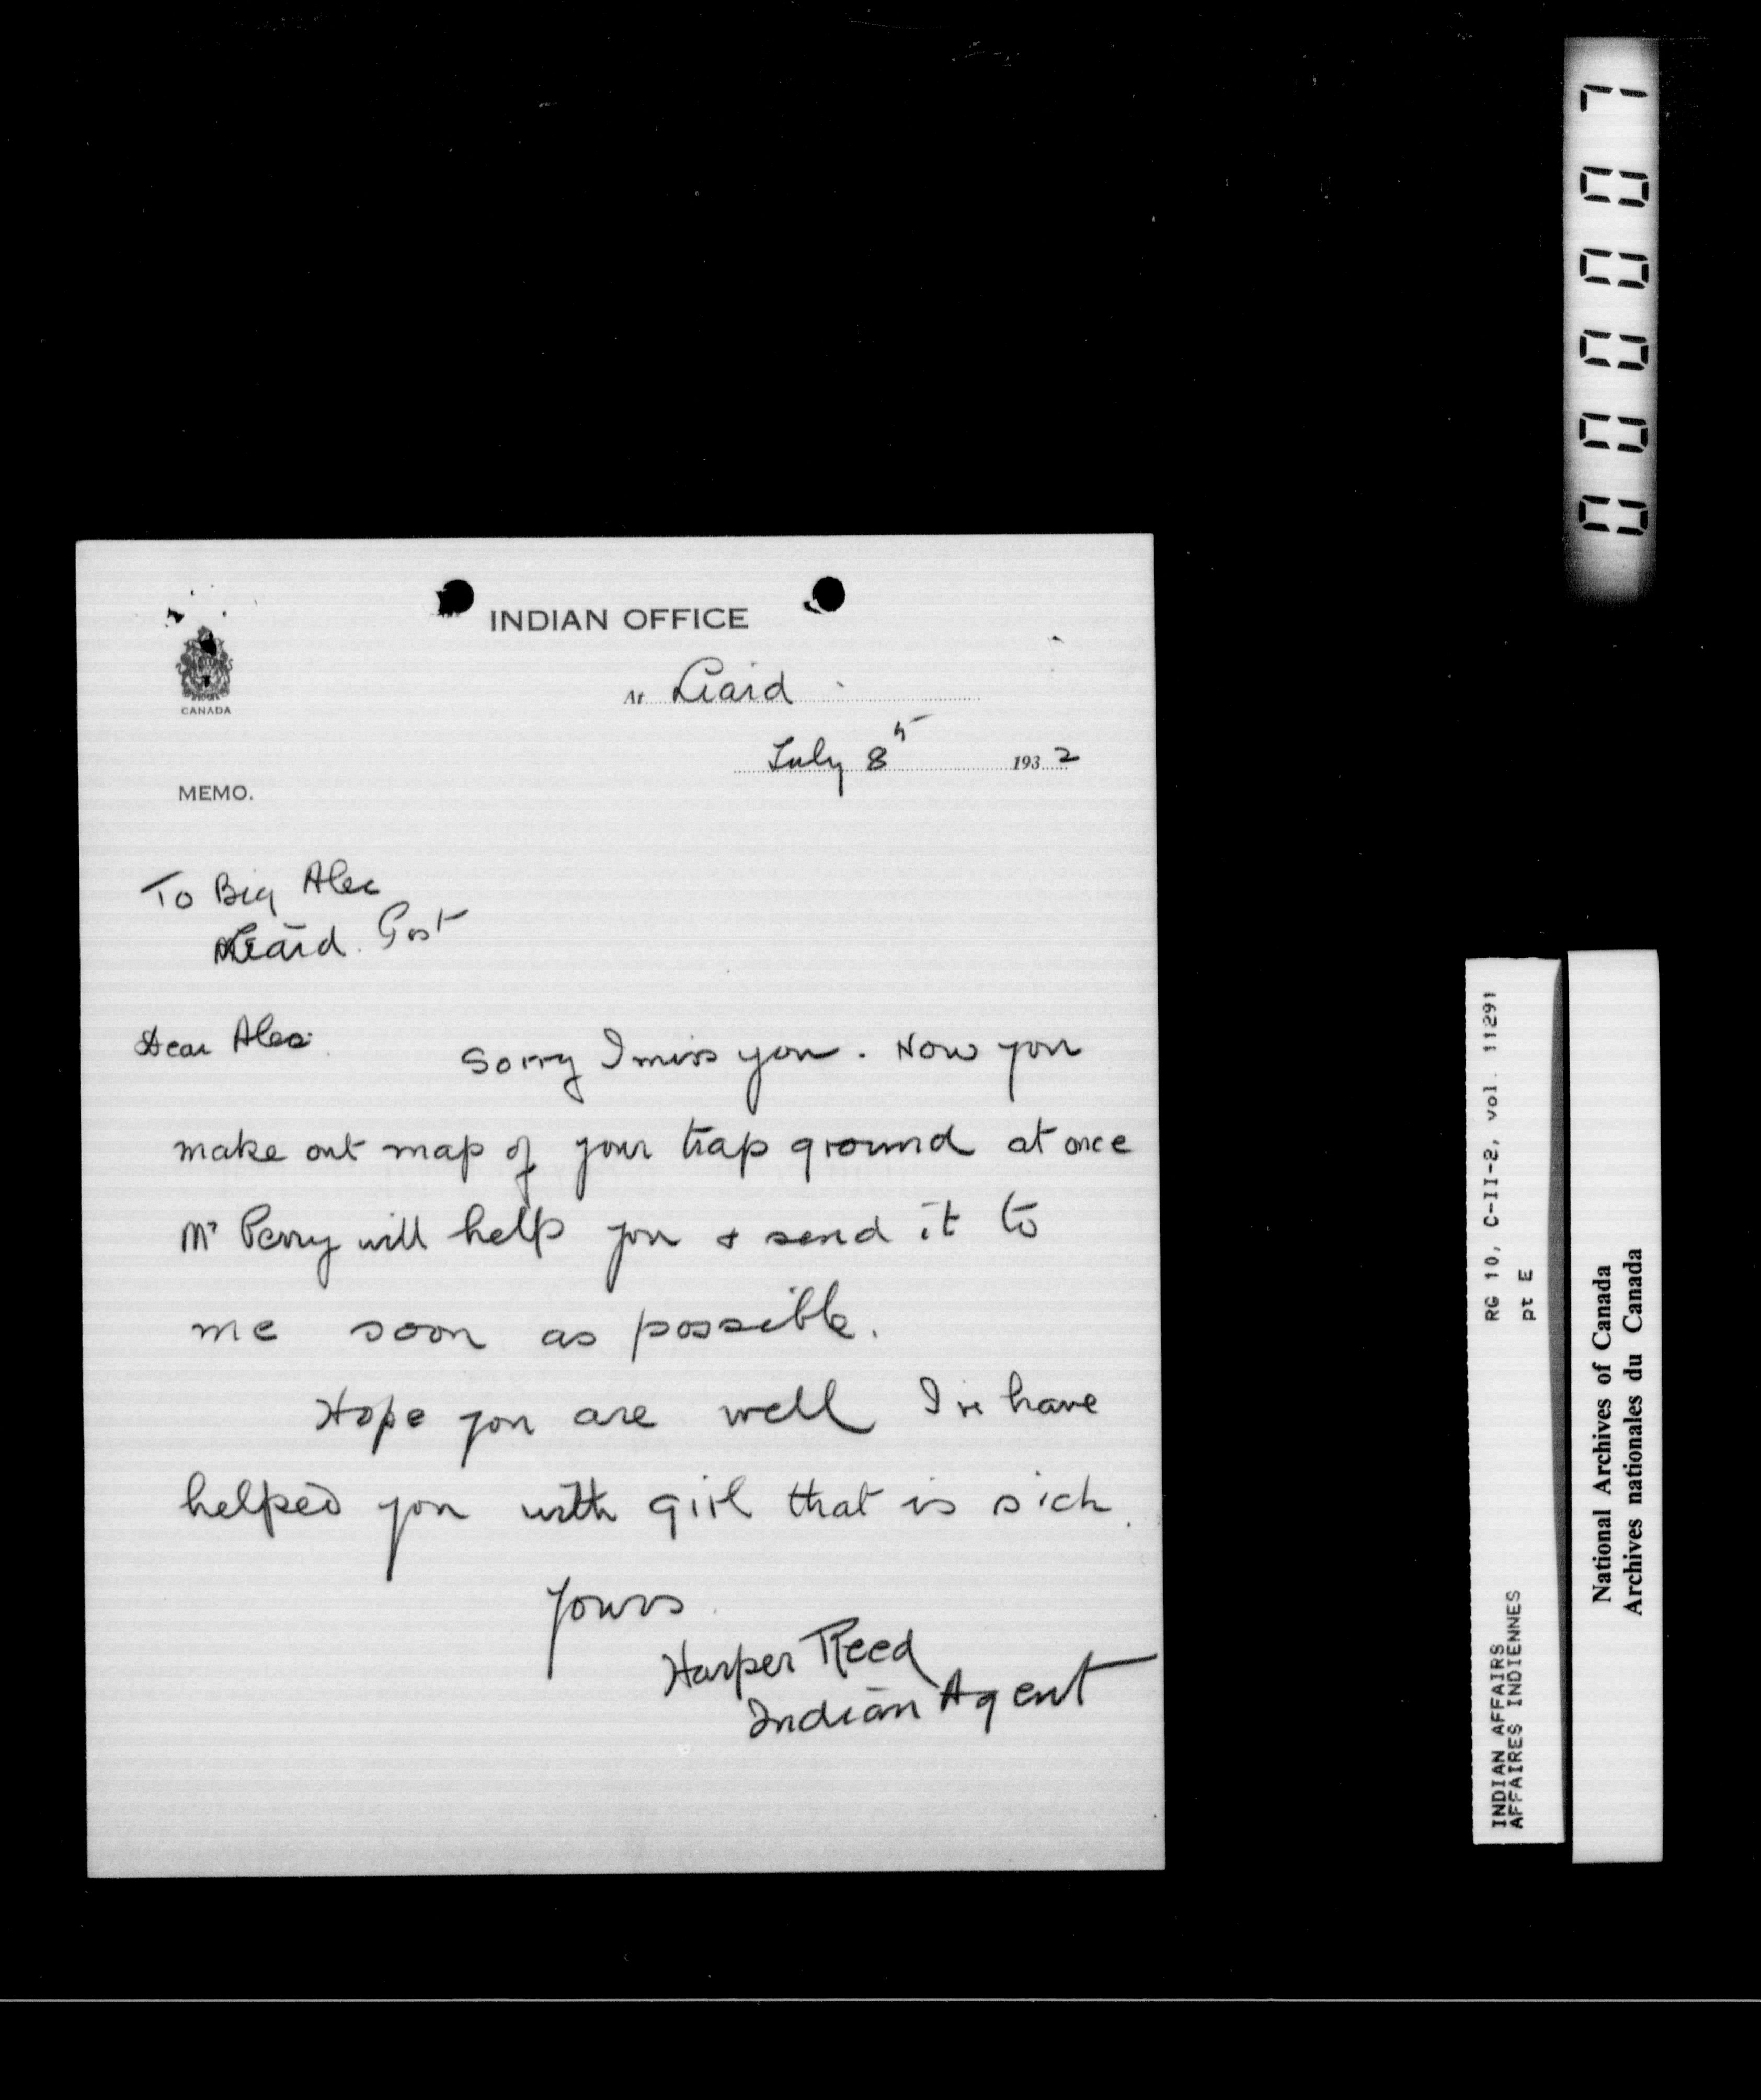 INDIAN OFFICE
CANADA
At Liard
July 8th 1932
MEMO.
To Big Alec
Liard Post
Dear Alec
Sorry I miss you. Now you
make out map of your trap ground at once
Mr Perry will help you & send it to
me soon as possible.
Hope you are well I have
helped you with girl that is sick.
Yours
Harper Reed
Indian Agent
000007
RG 10, C-II-2, vol. 11291
pt E
INDIAN AFFAIRS
AFFAIRES INDIENNES
National Archives of Canada
Archives nationales du Canada